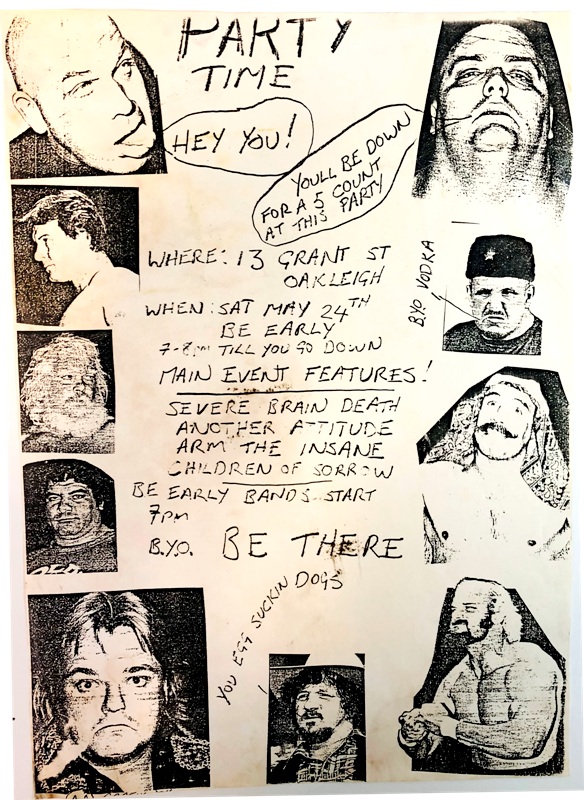 PARTY
TIME
HEY YOU!
YOULL BE DOWN
FOR A 5 COUNT
AT THIS PARTY
WHERE: 13 GRANT ST
OAKLEIGH
WHEN: SAT MAY 24TH
BE EARLY
7-8pm TILL YOU GO DOWN
BYO VODKA
MAIN EVENT FEATURES!
SEVERE BRAIN DEATH
ANOTHER ATTITUDE
ARM THE INSANE
CHILDREN OF SORROW
BE EARLY BANDS START
7pm
B.Y.O. BE THERE
YOU EGG SUCKIN DOGS